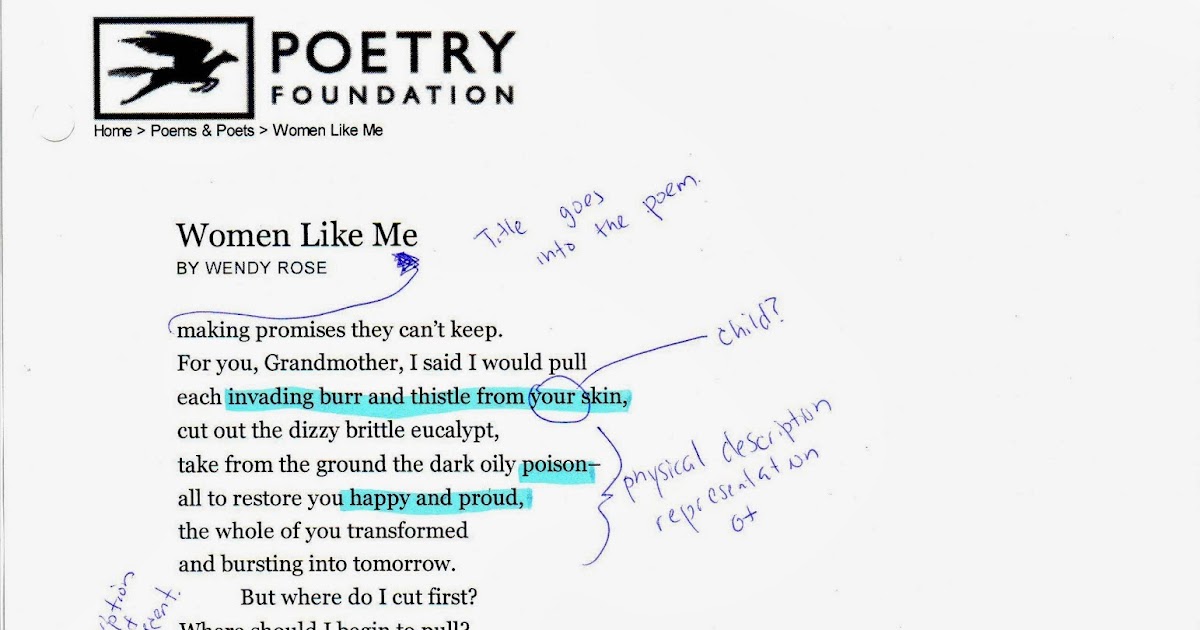 POETRY
FOUNDATION
Home > Poems & Poets > Women Like Me
Title goes
into the poem.
Women Like Me
BY WENDY ROSE
making promises they can't keep.
child?
For you, Grandmother, I said I would pull
each invading burr and thistle from your skin,
cut out the dizzy brittle eucalypt,
take from the ground the dark oily poison–
physical description
representation
of
all to restore you happy and proud,
the whole of you transformed
and bursting into tomorrow.
But where do I cut first?
Where should I begin to pull?